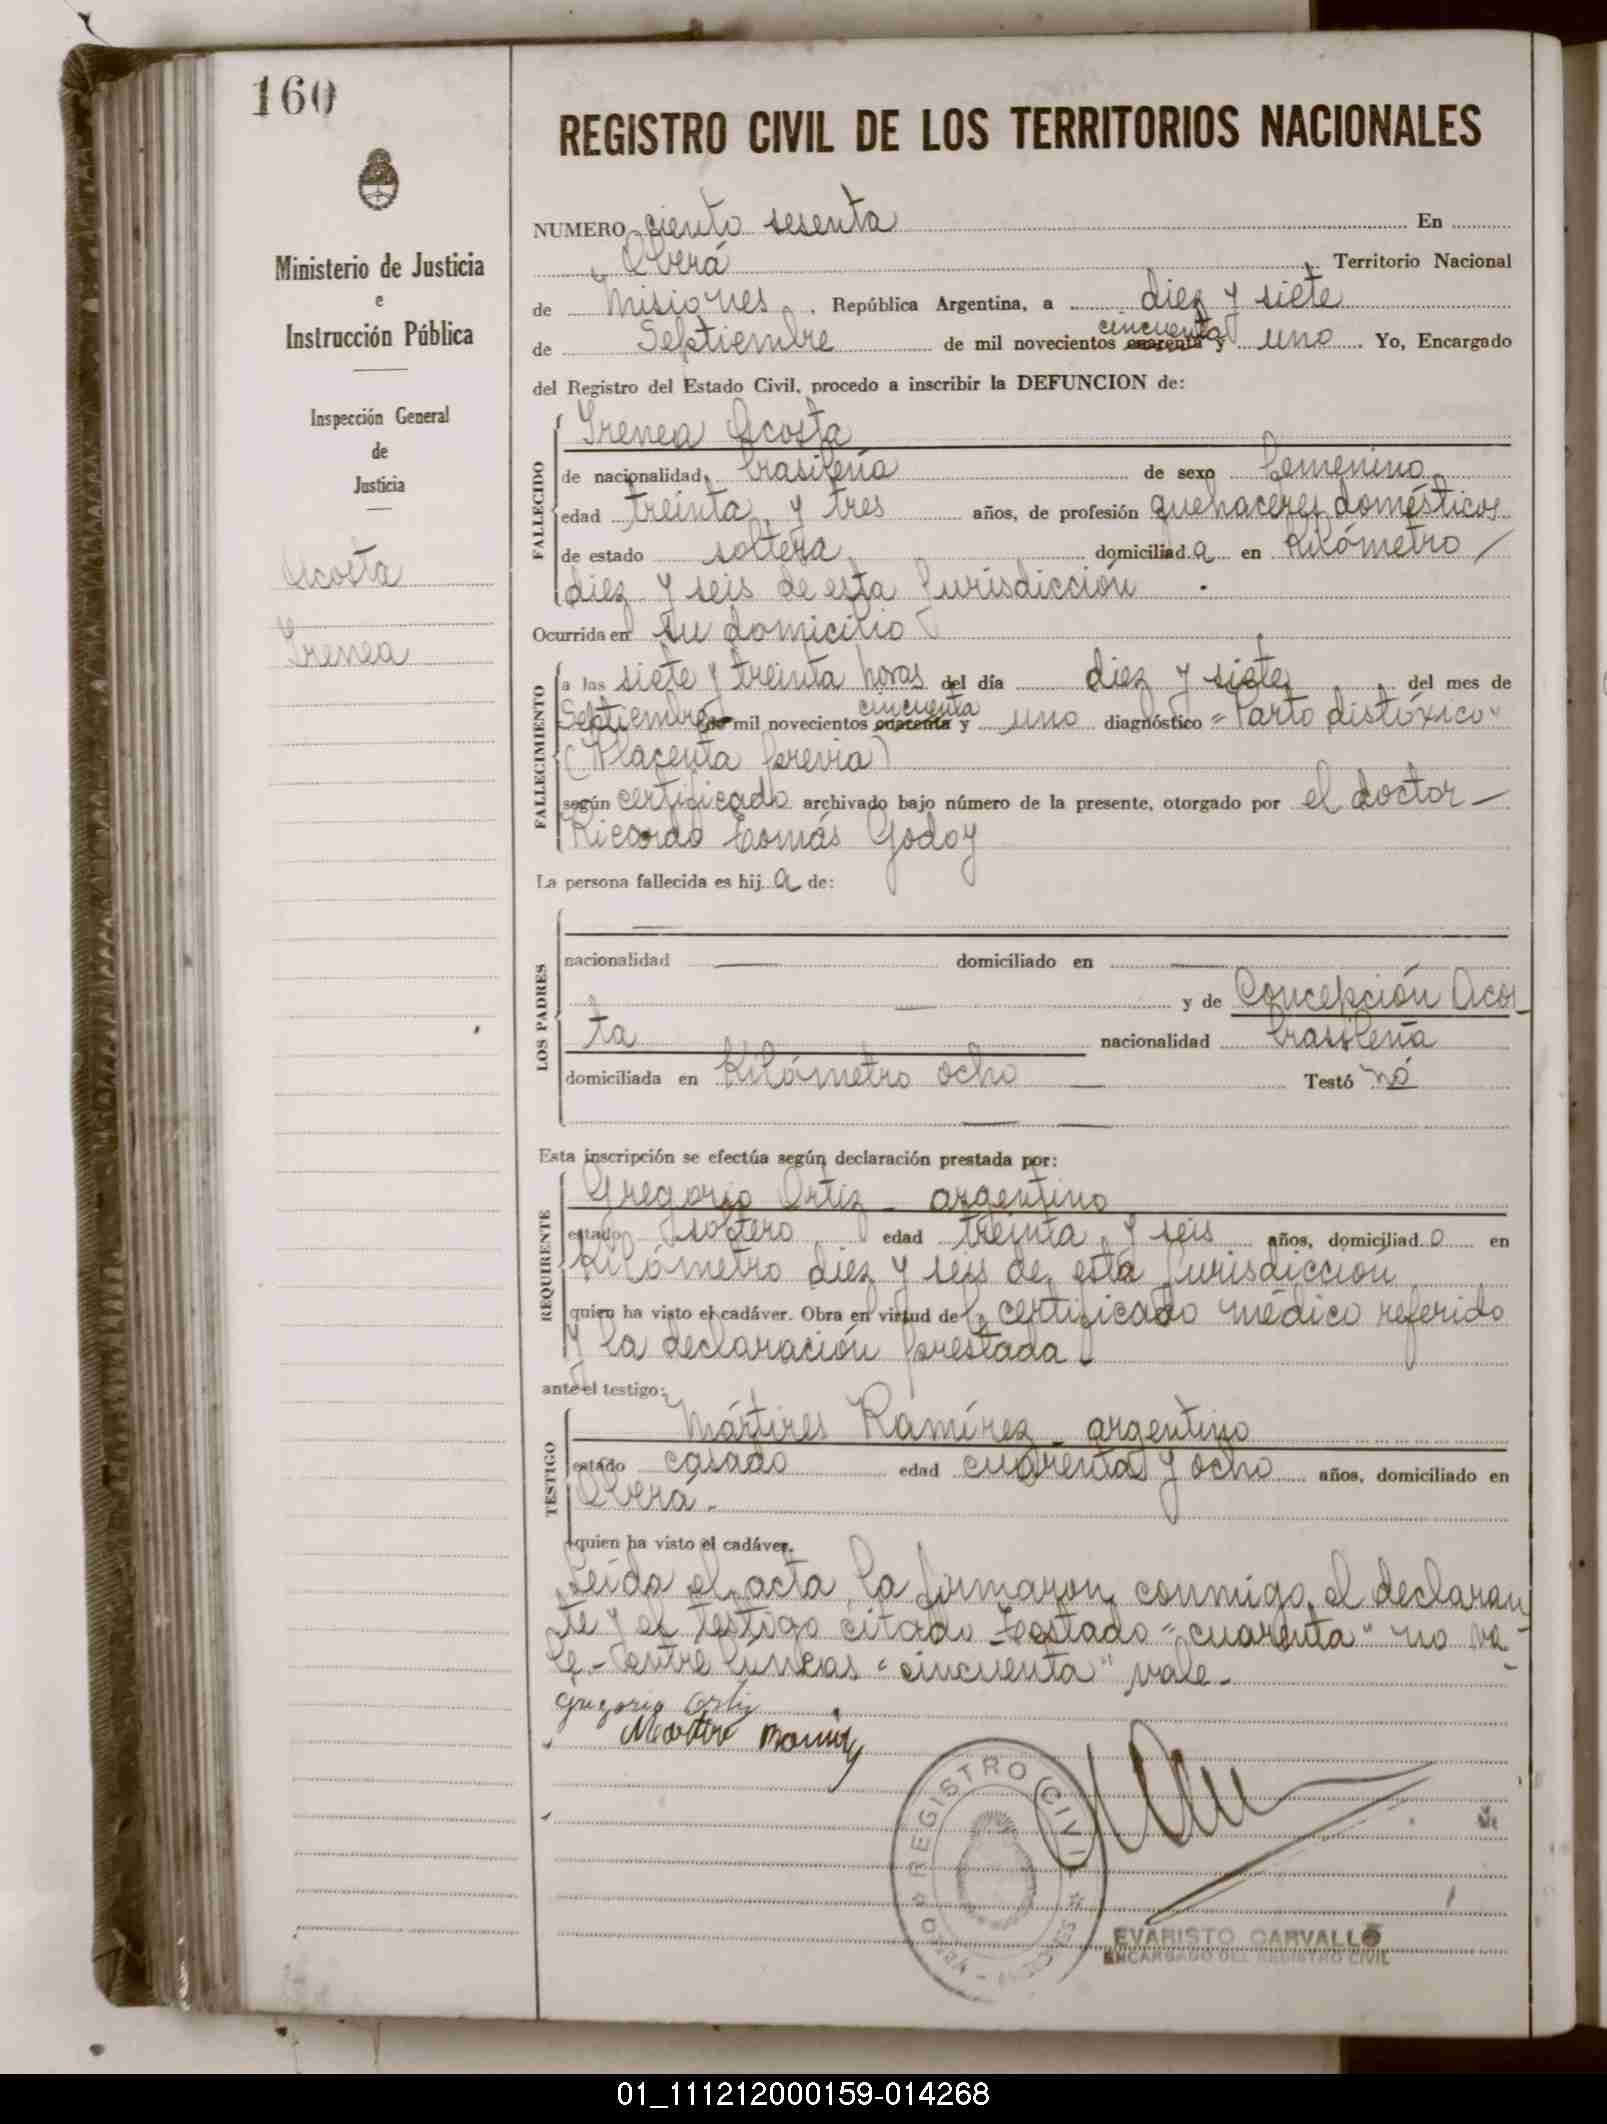 160
REGISTRO CIVIL DE LOS TERRITORIOS NACIONALES
Ministerio de Justicia
e
Instrucción Pública
Inspección General
de
Justicia
Acosta
Irenea
NUMERO ciento sesenta En
Oberá Territorio Nacional
de Misiones, República Argentina, a diez y siete
cincuenta
de Septiembre de mil novecientos cuarenta y uno. Yo, Encargado
del Registro del Estado Civil, procedo a inscribir la DEFUNCION de:
FALLECIDO
Irenea Acosta
de nacionalidad brasileña de sexo femenino
edad treinta y tres años, de profesión quehaceres domésticos
de estado soltera domiciliad a en Kilómetro
diez y seis de esta Jurisdicción.
Ocurrida en su domicilio
FALLECIMIENTO
a las siete y treinta horas del día diez y siete del mes de
cincuenta
Septiembre de mil novecientos cuarenta y uno diagnóstico "Parto distóxico"
(Placenta previa)
según certificado archivado bajo número de la presente, otorgado por el doctor
Ricardo Tomás Godoy
La persona fallecida es hij a de:
LOS PADRES
nacionalidad — domiciliado en —
— y de Concepción Acos-
ta nacionalidad brasileña
domiciliada en Kilómetro ocho — Testó nó
Esta inscripción se efectúa según declaración prestada por:
REQUIRENTE
Gregorio Ortiz - argentino
estado soltero edad treinta y seis años, domiciliad o en
Kilómetro diez y seis de esta Jurisdicción
quien ha visto el cadáver. Obra en virtud del certificado médico referido
y la declaración prestada.
ante el testigo:
TESTIGO
Mártires Ramírez - argentino
estado casado edad cuarenta y ocho años, domiciliado en
Oberá.
quien ha visto el cadáver.
Leída el acta, la firmaron conmigo, el declaran
te y el testigo citado - Testado "cuarenta" no va-
le - Entre líneas "cincuenta" vale.
Gregorio Ortiz
REGISTRO CIVIL
EVARISTO CARVALLO
ENCARGADO DEL REGISTRO CIVIL
01_111212000159-014268